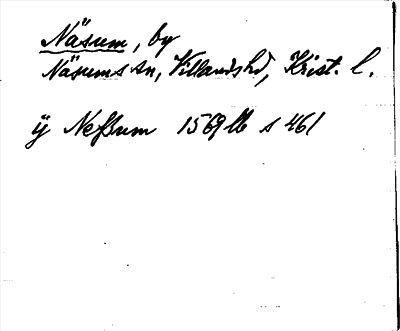 Näsum, by
Näsums sn, Villands hd, Krist. l.
ij Neßum 1569 lb s 461